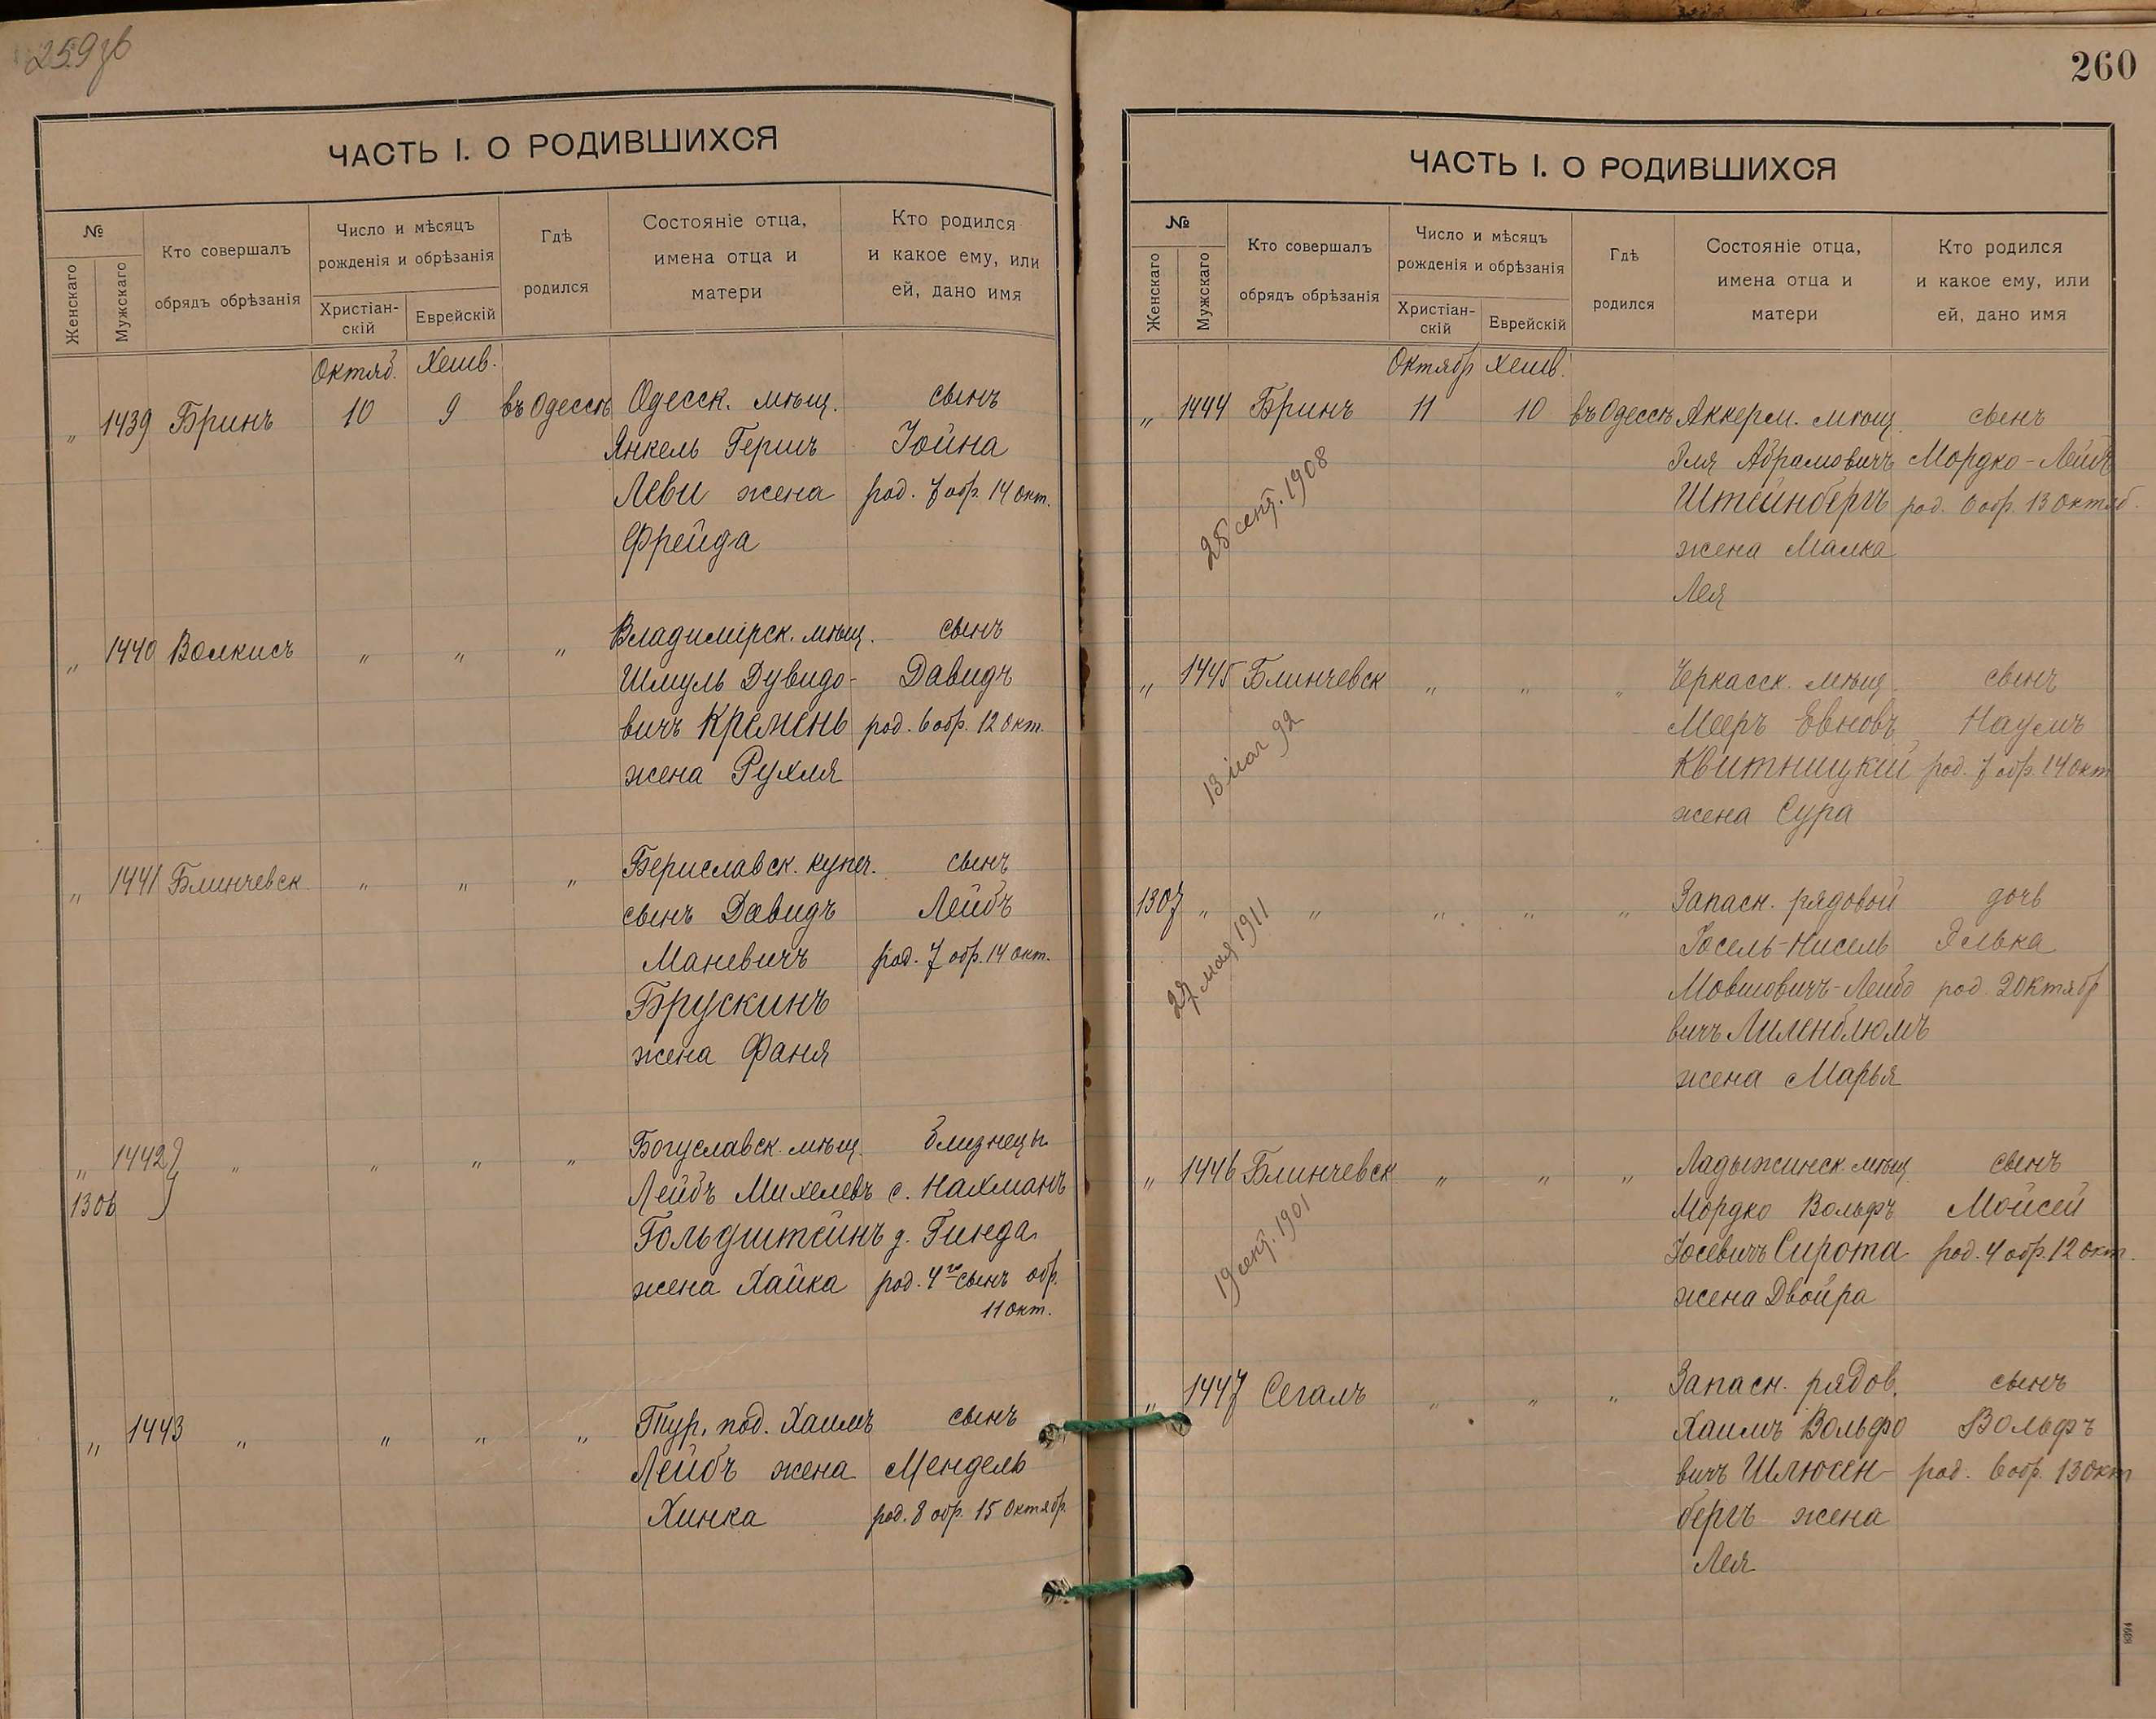 259 об
ЧАСТЬ I. О РОДИВШИХСЯ
№
Женскаго
Мужскаго
Кто совершалъ
обрядъ обрѣзанія
Число и мѣсяцъ
рожденія и обрѣзанія
Христіан-
скій
Еврейскій
Гдѣ
родился
Состояніе отца,
имена отца и
матери
Кто родился
и какое ему, или
ей, дано имя
Октяб. Хешв.
„ 1439 Бринъ 10 9 въ Одессѣ Одесск. мѣщ. сынъ
Янкель Гершъ Іойна
Леви жена род. 7 обр. 14 окт.
Фрейда
„ 1440 Волкисъ „ „ „ Владимірск. мѣщ. сынъ
Шмуль Дувидо- Давидъ
вичъ Кремень род. 6 обр. 12 окт.
жена Рухля
„ 1441 Блинчевск „ „ „ Бериславск. купеч. сынъ
сынъ Давидъ Лейбъ
Маневичъ род. 7 обр. 14 окт.
Брускинъ
жена Фаня
„ 1442 „ „ „ „ Богуславск. мѣщ. близнецы
1306 Лейбъ Михелевъ с. Нахманъ
Гольдштейнъ д. Гинда
жена Хайка род. 4го сынъ обр.
11 окт.
„ 1443 „ „ „ „ Тур. под. Хаимъ сынъ
Лейбъ жена Мендель
Хинка род. 8 обр. 15 Октябр.
260
ЧАСТЬ I. О РОДИВШИХСЯ
№
Женскаго
Мужскаго
Кто совершалъ
обрядъ обрѣзанія
Число и мѣсяцъ
рожденія и обрѣзанія
Христіан-
скій
Еврейскій
Гдѣ
родился
Состояніе отца,
имена отца и
матери
Кто родился
и какое ему, или
ей, дано имя
Октябр Хешв.
„ 1444 Бринъ 11 10 въ Одессѣ Аккерм. мѣщ. сынъ
Эля Абрамовичъ Мордко-Лейб
Штейнбергъ род. 6 обр. 13 октяб.
жена Малка
Лея
25 сент. 1908
„ 1445 Блинчевск „ „ „ Черкасск. мѣщ. сынъ
Мееръ Евновъ Наумъ
Квитницкій род. 7 обр. 14 окт
жена Сура
92
1307 „ „ „ „ „ Запасн. рядовой дочь
Іосель-Нисель Элька
Мовшовичъ-Лейбо род. 2 Октябр
вичъ Лиленблюмъ
жена Марья
27 мая 1911
„ 1446 Блинчевск „ „ „ Ладыжинск. мѣщ. сынъ
Мордко Вольфъ Мойсей
Іосевичъ Сирота род. 4 обр. 12 окт.
жена Двойра
19 сент. 1901
„ 1447 Сегалъ „ „ „ Запасн. рядов. сынъ
Хаимъ Вольфо Вольфъ
вичъ Шлюсен- род. 6 обр. 13 окт
бергъ жена
Лея